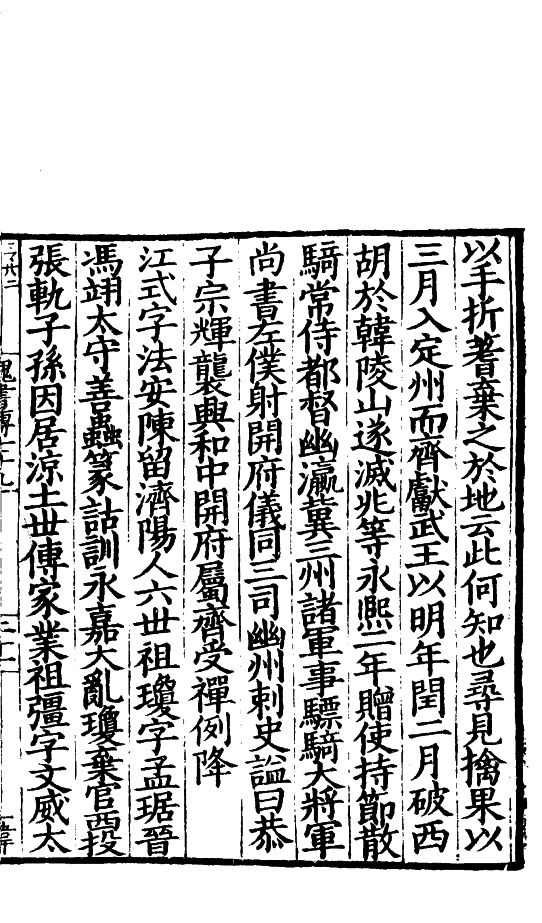 以手折蓍棄之於地云此何知也尋見擒果以
三月入定州而齊獻武王以明年閏二月破西
胡於韓陵山遂滅兆等永熙二年贈使持節散
騎常侍都督幽瀛冀三州諸軍事驃騎大將軍
尚書左僕射開府儀同三司幽州刺史謚曰恭
子宗輝襲興和中開府屬齊受禪例降
江式字法安陳留濟陽人六世祖瓊字孟琚晉
馮翊太守善蟲篆詁訓永嘉大亂瓊棄官西投
張軌子孫因居涼土世傳家業祖彊字文威太
魏書傳七十九